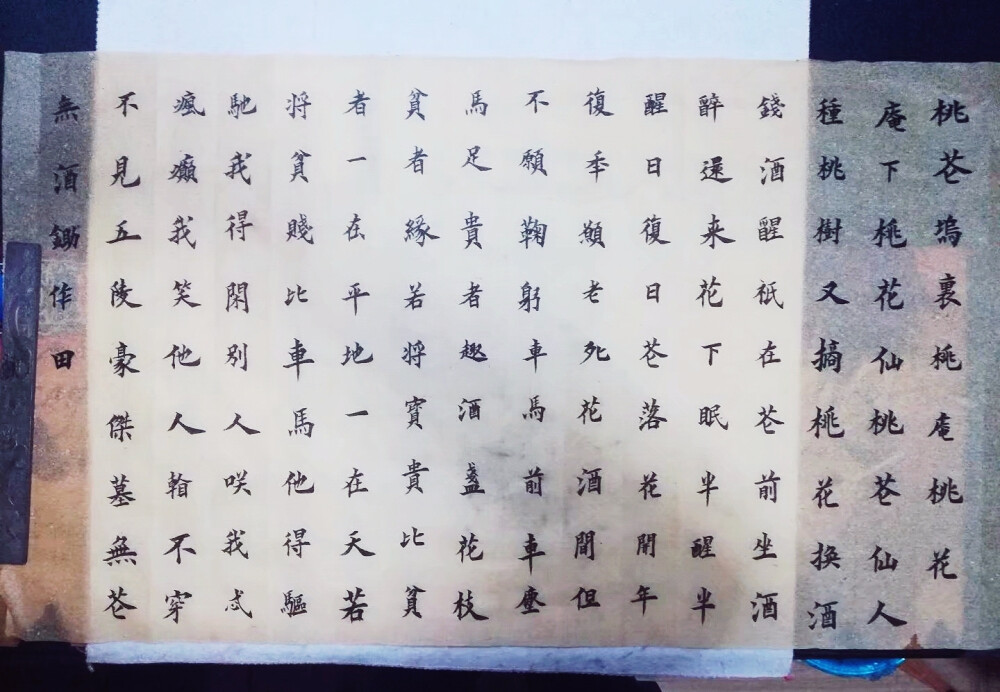 桃花塢裏桃庵桃花
庵下桃花仙桃花仙人
種桃樹又摘桃花換酒
錢酒醒祇在花前坐酒
醉還来花下眠半醒半
醒日復日花落花開年
復秊願老死花酒間但
不願鞠躬車馬前車塵
馬足貴者趣酒盞花枝
貧者緣若将富貴比貧
者一在平地一在天若
将貧賤比車馬他得驅
馳我得閑別人咲我忒
瘋癲我笑他人看不穿
不見五陵豪傑墓無花
無酒鋤作田